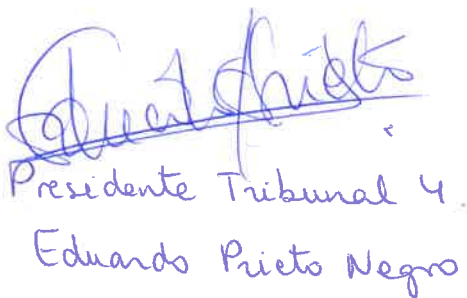 Eduardo Prieto
Presidente Tribunal 4
Eduardo Prieto Negro